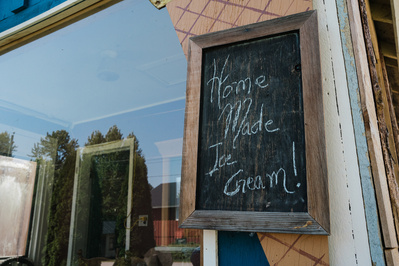 Home
Made
Ice
Cream!